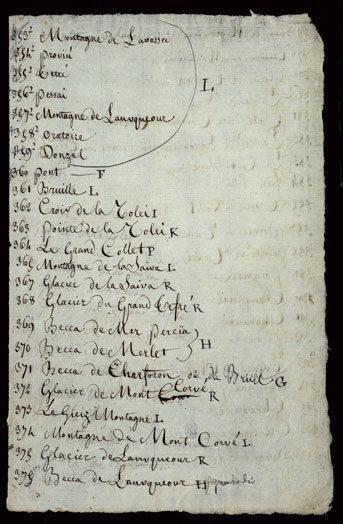 353ᵉ Montagne de Lavassei
354ᵉ Proviú
355ᵉ Terré
356ᵉ Pessai
357ᵉ Montagne de Lauvqueour
358ᵉ Oratoire
359ᵉ Donzel
L
360 Pont — F
361 Bruille L
362 Croix de la Tolei I
363 Pointe de la Tolei K
364 Le Grand Collet P
365 Montagne de la Saiva L
367 Glacier de la Saiva R
368 Glacier du Grand Etré R
369 Becca de Mer Percia
370 Becca de Merlet
H
371 Becca de Charforon ou de Bruil G
372 Glacier de Mont Corvé R
373 Le Gieiz Montagne L
374 Montagne de Mont Corvé L
375 Glacier de Lauvqueour R
376 Becca de Lauvqueour H